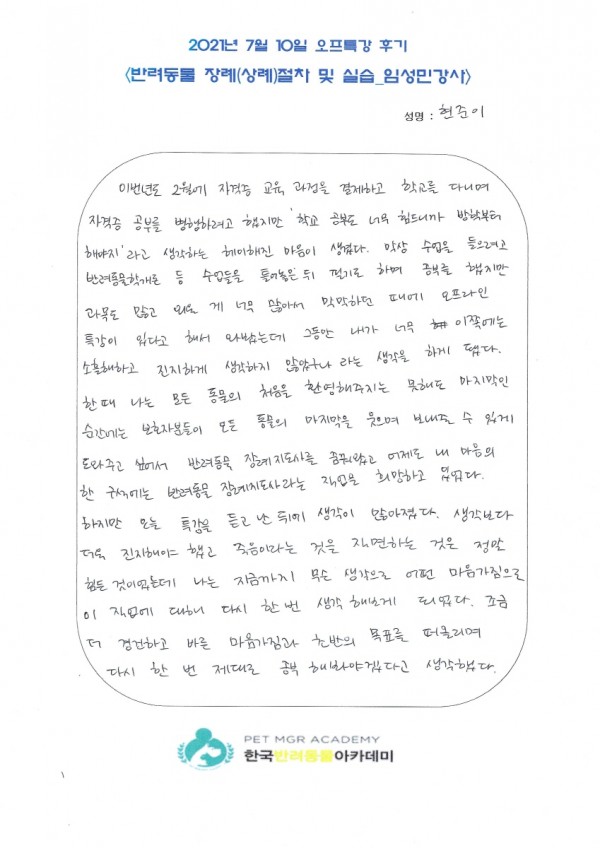 2021년 7월 10일 오프특강 후기
<반려동물 장례(상례)절차 및 실습_임성민강사>
성명 : 현준이
이번년도 2월에 자격증 교육 과정을 결제하고 학교를 다니며
자격증 공부를 병행하려고 했지만 '학교 공부도 너무 힘드니까 방학부터
해야지'라고 생각하는 헤이해진 마음이 생겼다. 막상 수업을 들으려고
반려동물학개론 등 수업들을 틀어놓은 뒤 필기도 하며 공부를 했지만
과목도 많고 외울 게 너무 많아서 막막하던 때에 오프라인
특강이 있다고 해서 와봤는데 그동안 내가 너무 이쪽에는
소홀해하고 진지하게 생각하지 않았구나 라는 생각을 하게 됐다.
한때 나는 모든 동물의 처음을 환영해주지는 못해도 마지막인
순간에는 보호자분들이 모든 동물의 마지막을 웃으며 보내줄 수 있게
도와주고 싶어서 반려동물 장례지도사를 꿈꿔왔고 어제도 내 마음의
한 구석에는 반려동물 장례지도사라는 직업을 희망하고 있었다.
하지만 오늘 특강을 듣고 난 뒤에 생각이 많아졌다. 생각보다
더욱 진지해야 했고 죽음이라는 것을 직면하는 것은 정말
힘든 것이었는데 나는 지금까지 무슨 생각으로 어떤 마음가짐으로
이 직업에 대해 다시 한 번 생각 해보게 되었다. 조금
더 경건하고 바른 마음가짐과 초반의 목표를 떠올리며
다시 한 번 제대로 공부 해봐야겠다고 생각했다.
PET MGR ACADEMY
한국반려동물아카데미